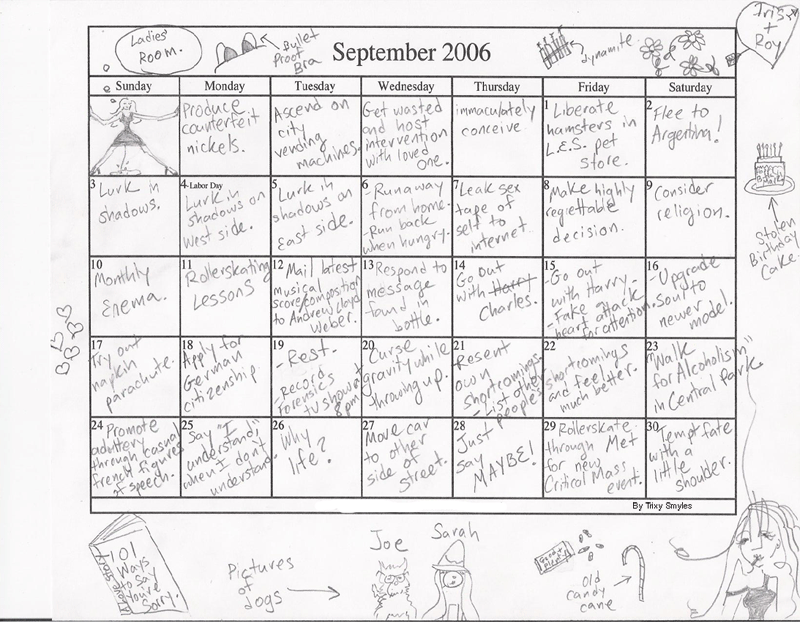 Ladies'
Room.
Bullet
Proof
Bra
September 2006
dynamite.
Iris
+
Roy
Sunday Monday Tuesday Wednesday Thursday Friday Saturday
Produce
counterfeit
nickels.
Ascend on
city
vending
machines.
Get wasted
and host
intervention
with loved
one.
immaculately
conceive.
1 Liberate
hamsters in
L.E.S. pet
store.
2 Flee to
Argentina!
3 Lurk in
shadows.
4 Labor Day
Lurk in
shadows on
West side.
5 Lurk in
shadows on
East side.
6 - Runaway
from home.
- Run back
when hungry.
7 Leak sex
tape of
self to
internet.
8 Make highly
regrettable
decision.
9 Consider
religion.
Stolen
Birthday
Cake.
10 Monthly
Enema.
11 Rollerskating
Lessons
12 Mail latest
musical
score/composition
to Andrew Lloyd
Weber.
13 Respond to
message
found in
bottle.
14 Go out
with Harry
Charles.
15 - Go out
with Harry.
- Fake heart attack
for attention.
16 - Upgrade
soul to
newer model.
17 Try out
napkin
parachute.
18 Apply for
German
citizenship.
19 - Rest.
- Record
Forensics
tv show
8pm
20 Curse
gravity while
throwing up.
21 Resent
own
shortcomings.
- List other
people's
22 shortcomings
and feel
much better.
23 "Walk
for Alcoholism"
in Central Park
24 Promote
adultery
through casual
french figures
of speech.
25 Say "I
understand"
when I don't
understand.
26 Why
life?
27 Move car
to other
side of
street.
28 Just
say
MAYBE!
29 Rollerskate
through Met
for new
Critical Mass
event.
30 Tempt fate
with a
little
shoulder.
By Trixy Smyles
101
Ways
to Say
You're
Sorry.
Pictures
of
dogs
Joe
Sarah
Old
candy
cane